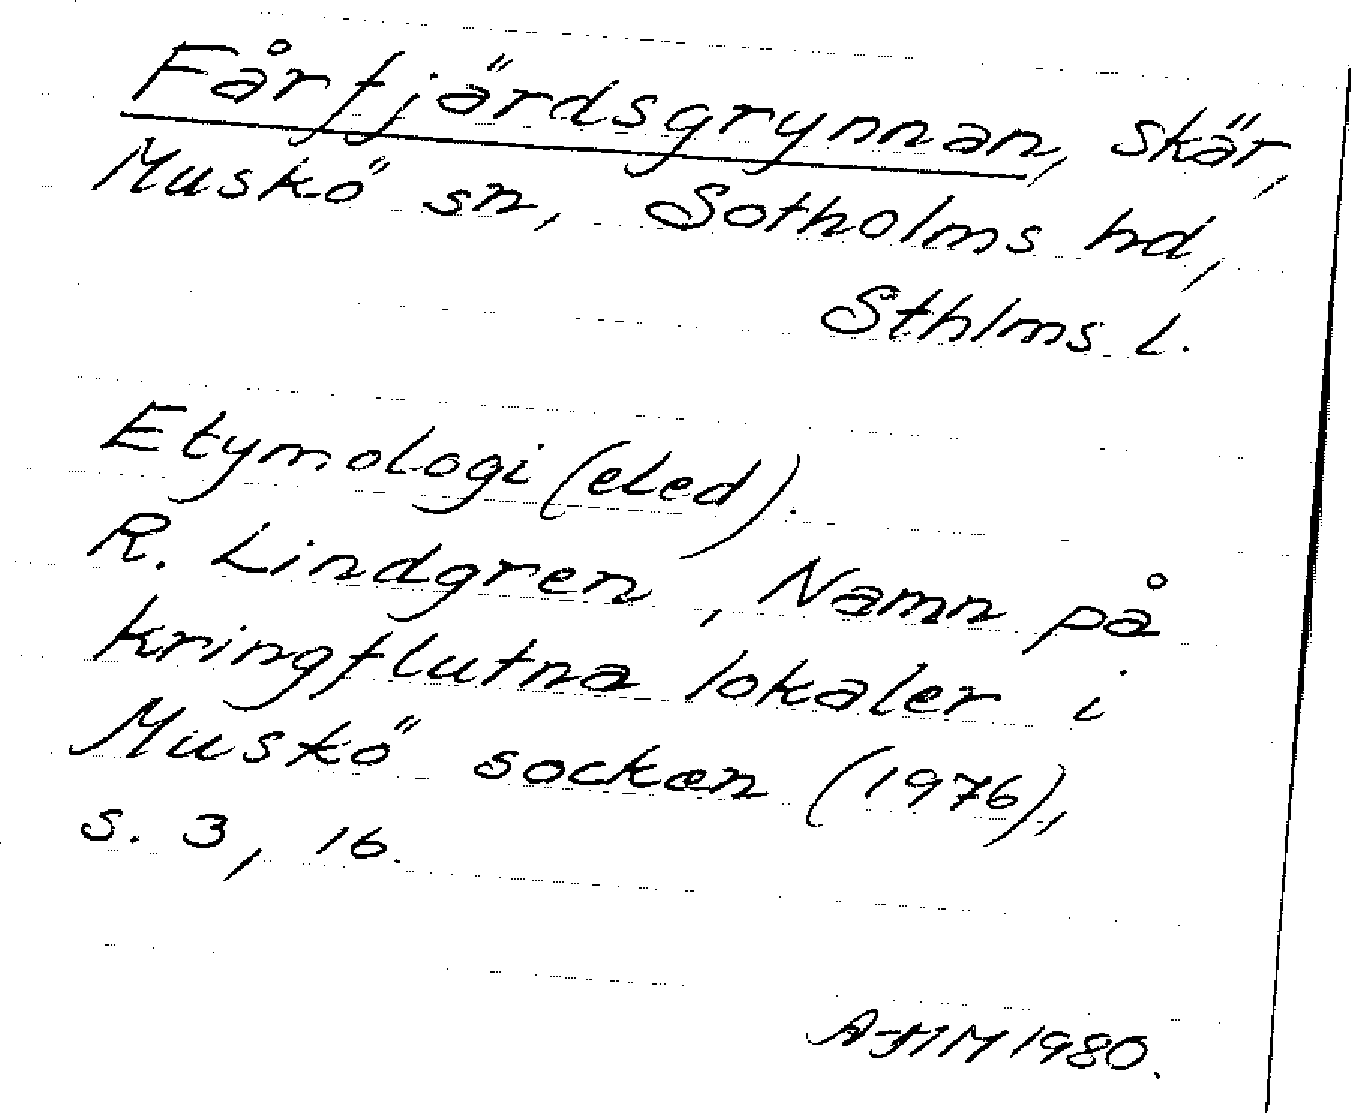 Fårfjärdsgrynnan, skär,
Muskö sn, Sotholms hd,
Sthlms l.
Etymologi (eled).
R. Lindgren, Namn på
kringflutna lokaler i
Muskö socken (1976),
s. 3, 16.
A-MM 1980.